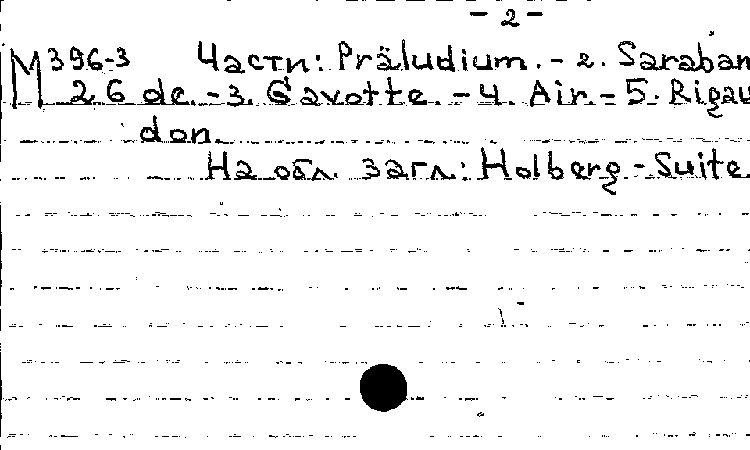 - 2 -
М 396-3 Части: Präludium. - 2. Saraban
26 de. - 3. Gavotte. - 4. Air. - 5. Rigau
don.
На обл. загл.: Holberg - Suite.